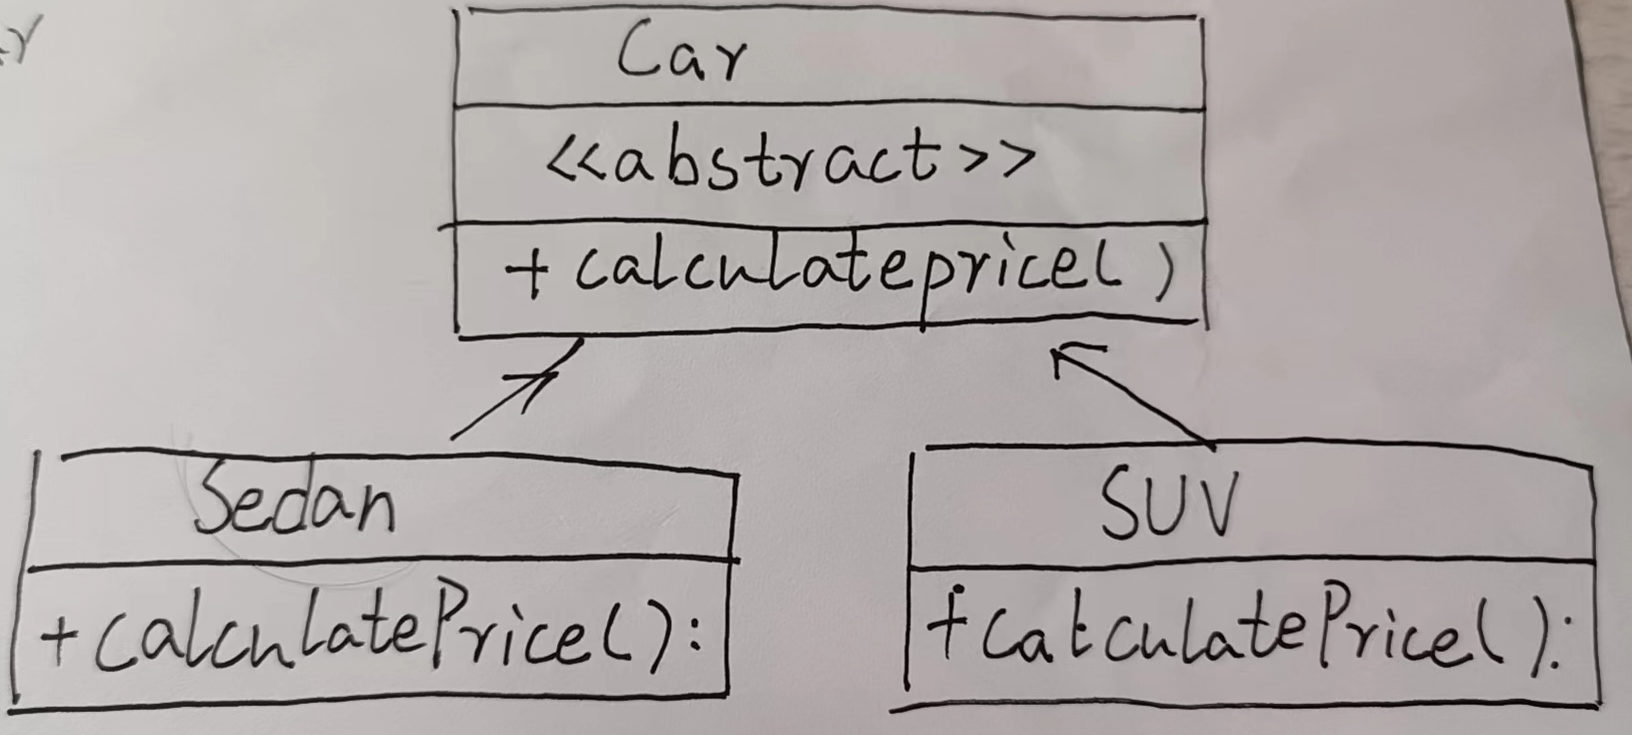 Car
<<abstract>>
+ calculateprice( )
Sedan
+ calculatePrice():
SUV
+ calculatePrice():